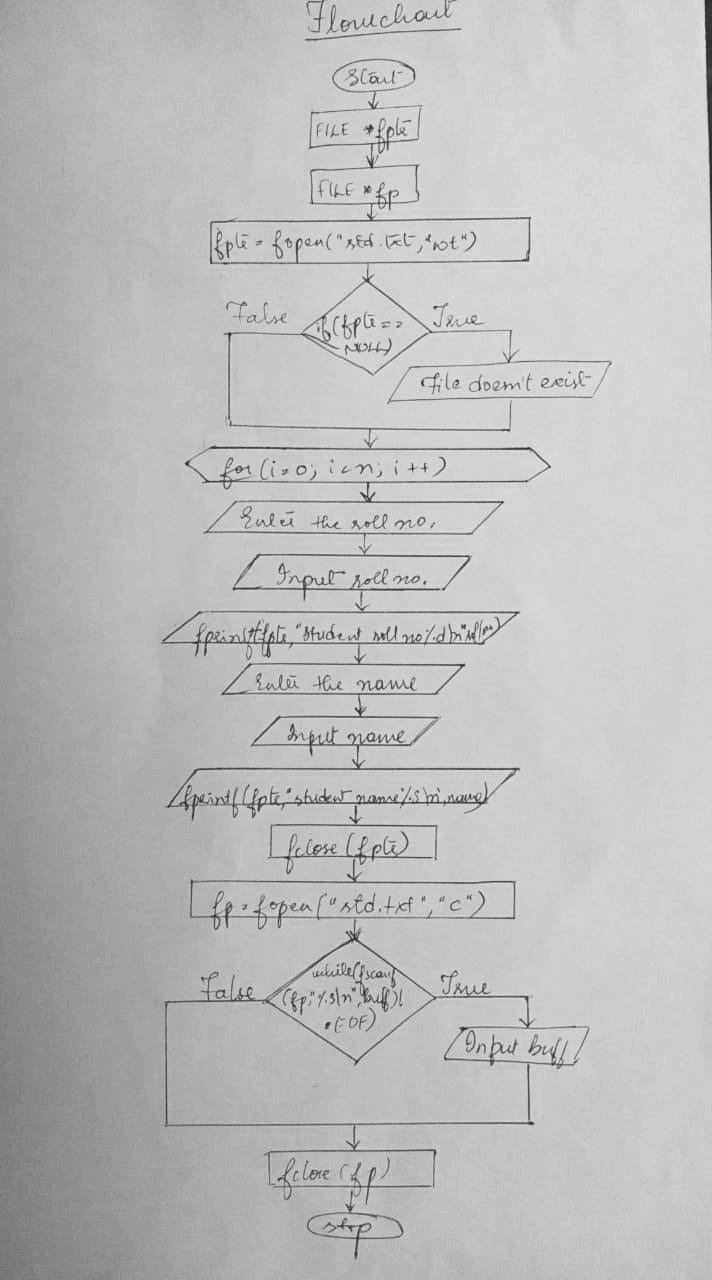 Flowchart
Start
FILE *fptr
FILE *fp
fptr = fopen("std.txt,"wt")
False
if(fptr ==
NULL)
True
File doesn't exist
for (i=0; i<n; i++)
Enter the roll no.
Input roll no.
fprintf(fptr,"student roll no%d\n"
Enter the name
Input name
fprintf(fptr,"student name%s\n",name)
fclose(fptr)
fp = fopen("std.txt","c")
False
while(fscanf
(fp,"%s\n",buff)!
=EOF)
True
Input buff
fclose(fp)
stop